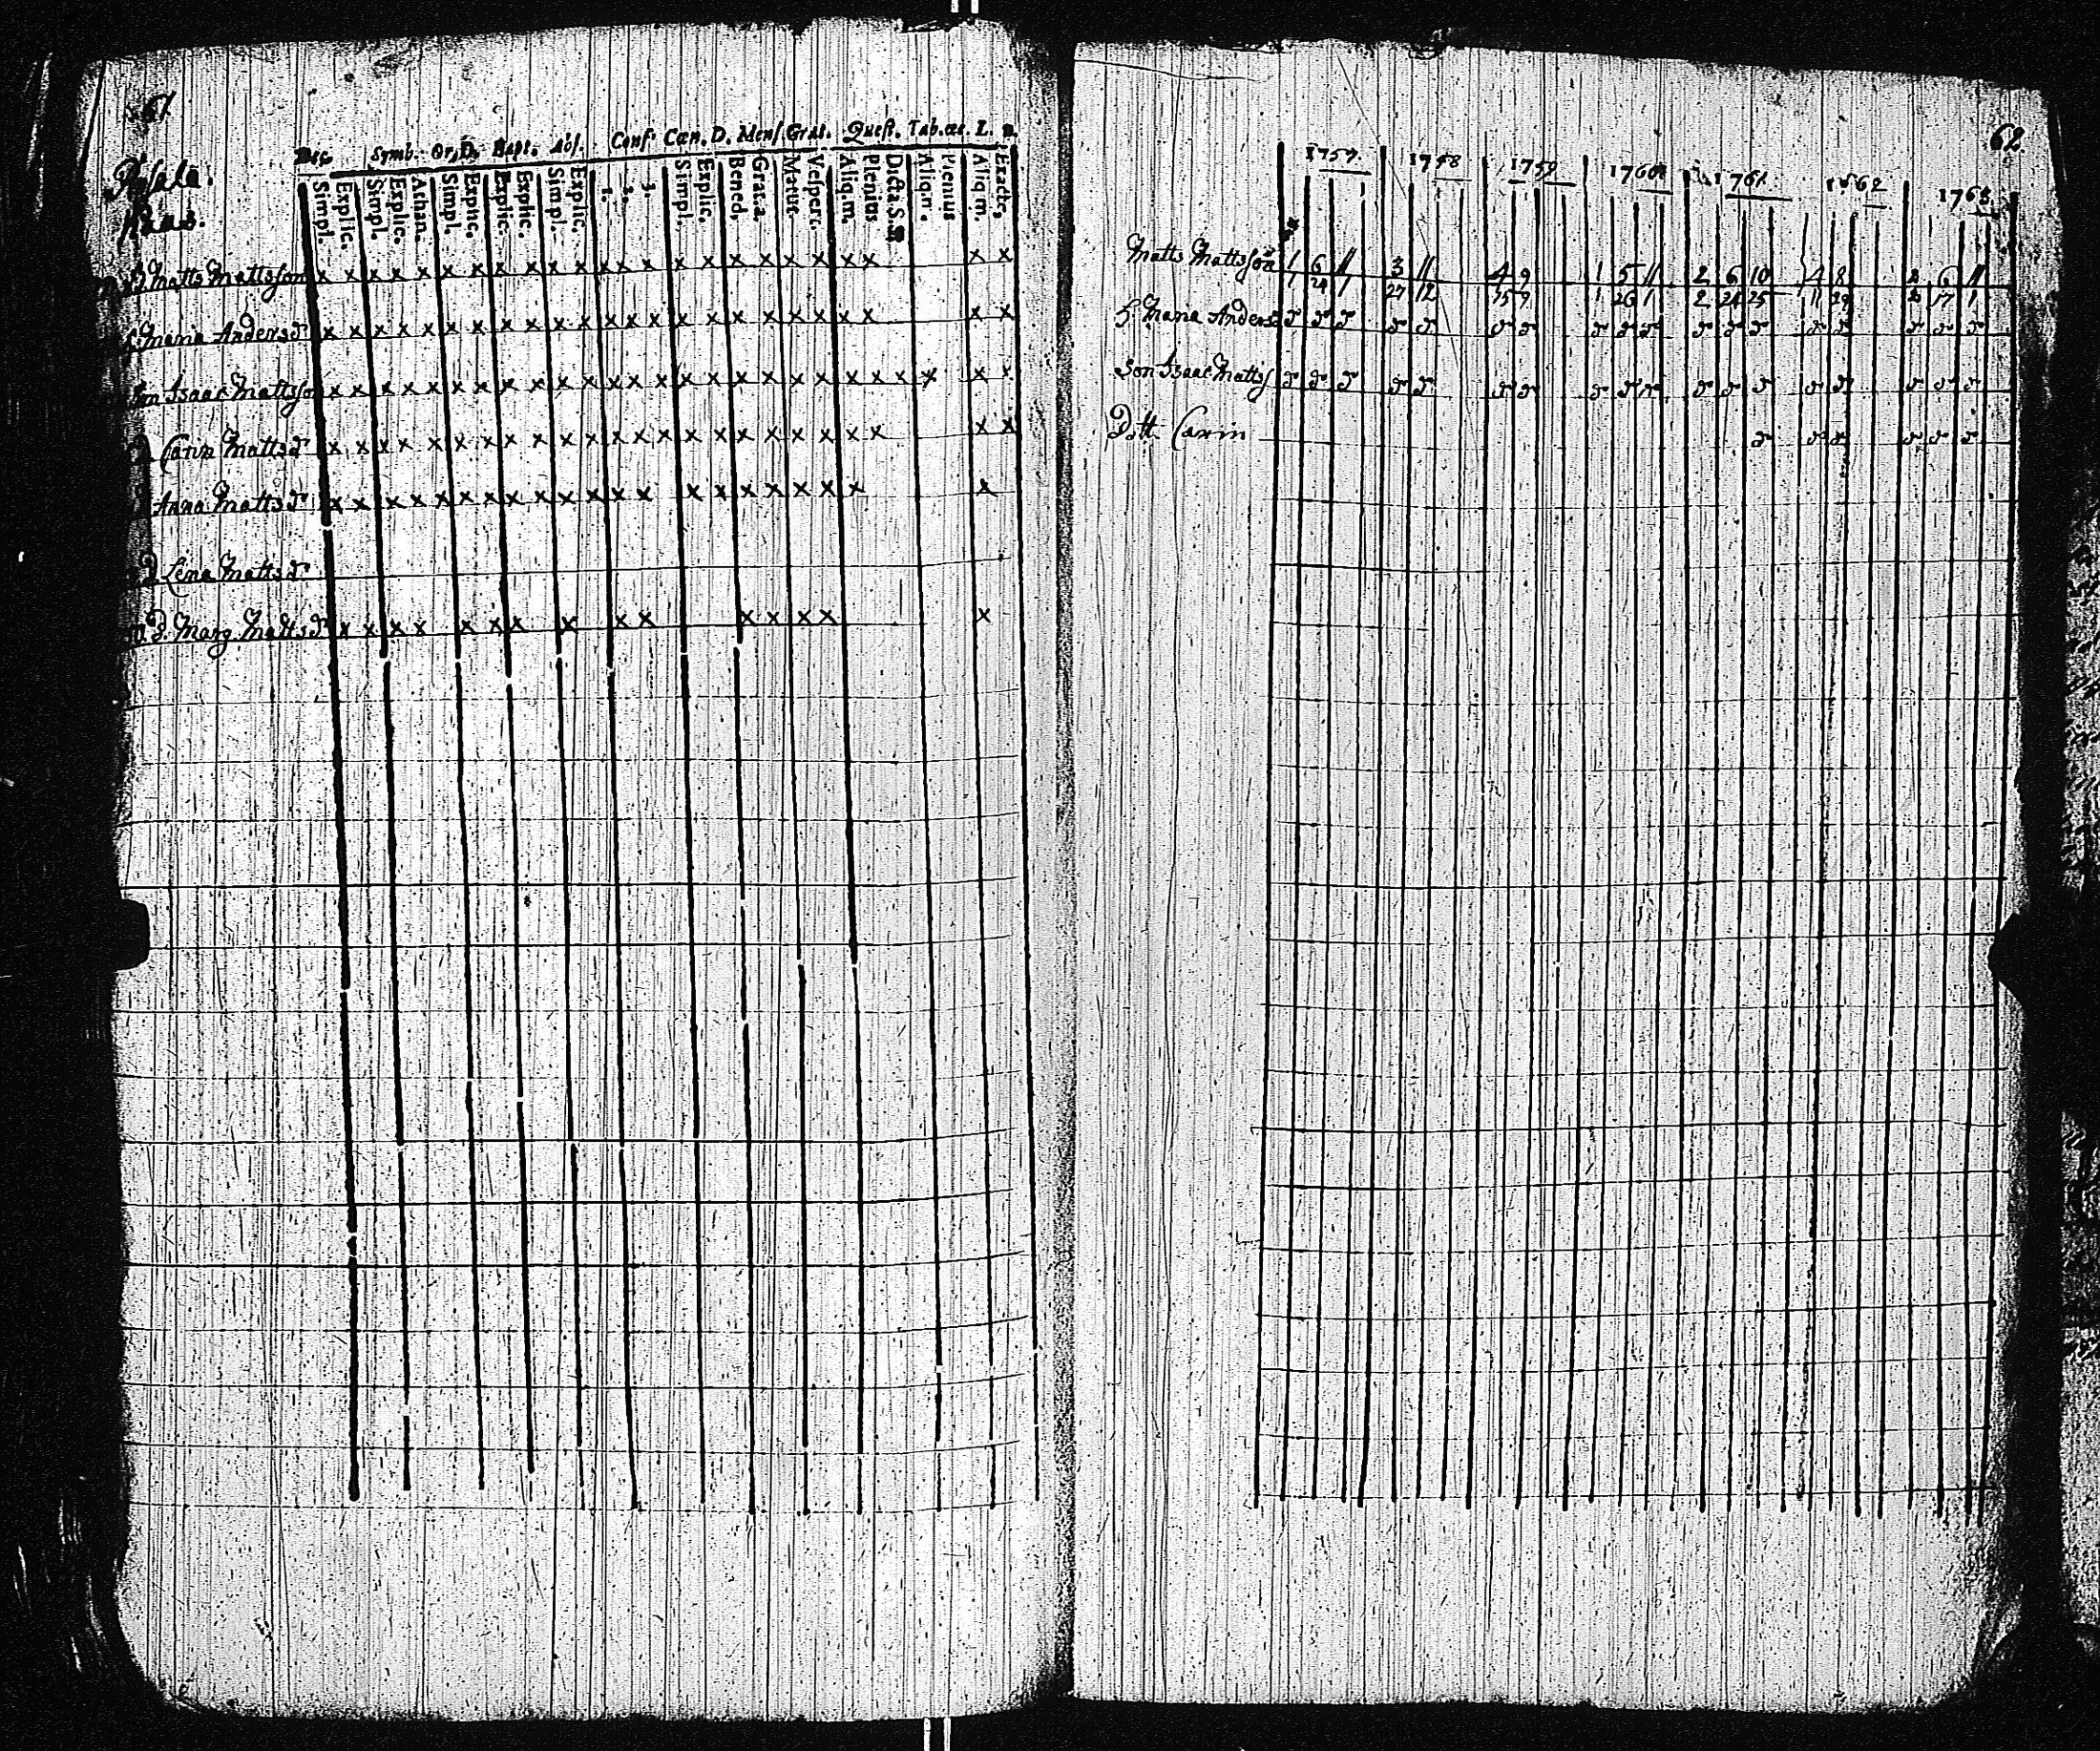 61.
Dec. Symb. Or. D. Bapt. Abs. Conf. Cœn. D. Mens. Grat. Quest. Tab. œc. L. n.
Simpl. Explic. Simpl. Explic. Athan. Simpl. Explic. Explic. Explic. Simpl. Explic. 1. 2. 3. Simpl. Explic. Bened. Grat. a. Matur. Vesper. Aliq. m. Plenius Dicta. S. S. Aliq. n. Plenius Aliq. m. Exacte
Matts Mattsson x x x x x x x x x x x x x x x x x x x x x x x x
Maria Andersdr x x x x x x x x x x x x x x x x x x x x x x x x
Isaac Mattsson x x x x x x x x x x x x x x x x x x x x x x x x x x
Carin Mattsdr x x x x x x x x x x x x x x x x x x x x x x x x
Anna Mattsdr x x x x x x x x x x x x x x x x x x x x x
Lena Mattsdr
D. Marg. Mattsdr x x x x x x x x x x x x x x x
62.
1757. 1758 1759 1760 1761 1762 1763.
Matts Mattsson 1 6 11 3 11 4 9 1 5 11 2 6 10 4 8 2 6 11
1 24 1 27 12 15 9 1 26 1 2 24 25 11 29 2 17 1
H. Maria Anders
Son Isaac Mattss
Dott. Carin